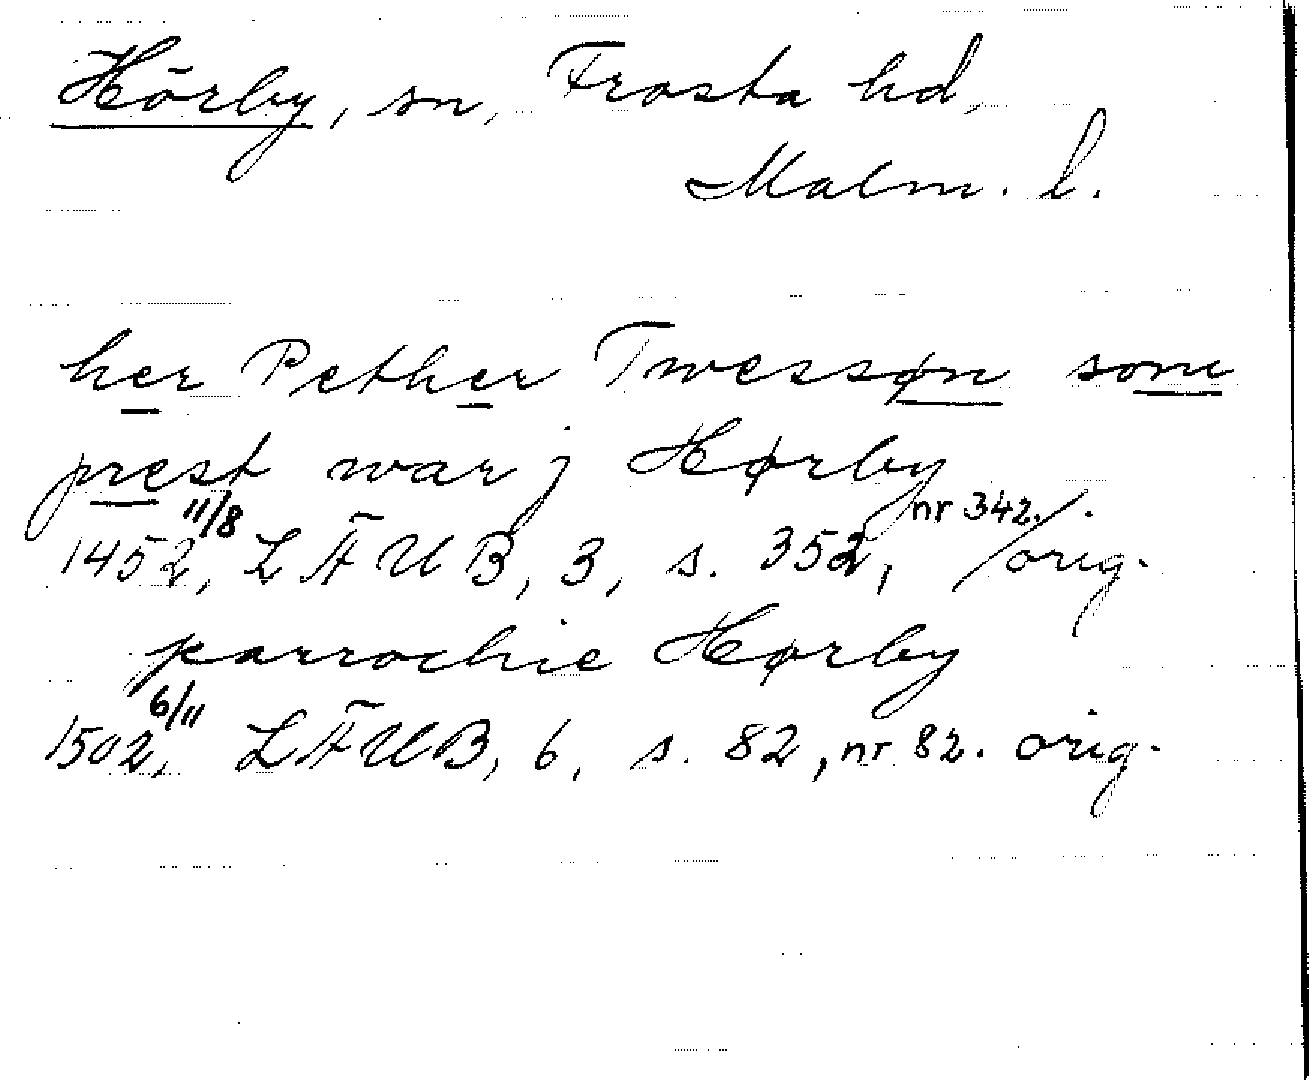 Hörby, sn, Frosta hd,
Malm. l.
her Pether Twessøn som
prest war j Hørby
1452 11/8, LÄUB, 3, s. 352, nr 342. orig.
parrochie Hørby
1502 6/11, LÄUB, 6, s. 82, nr 82. orig.